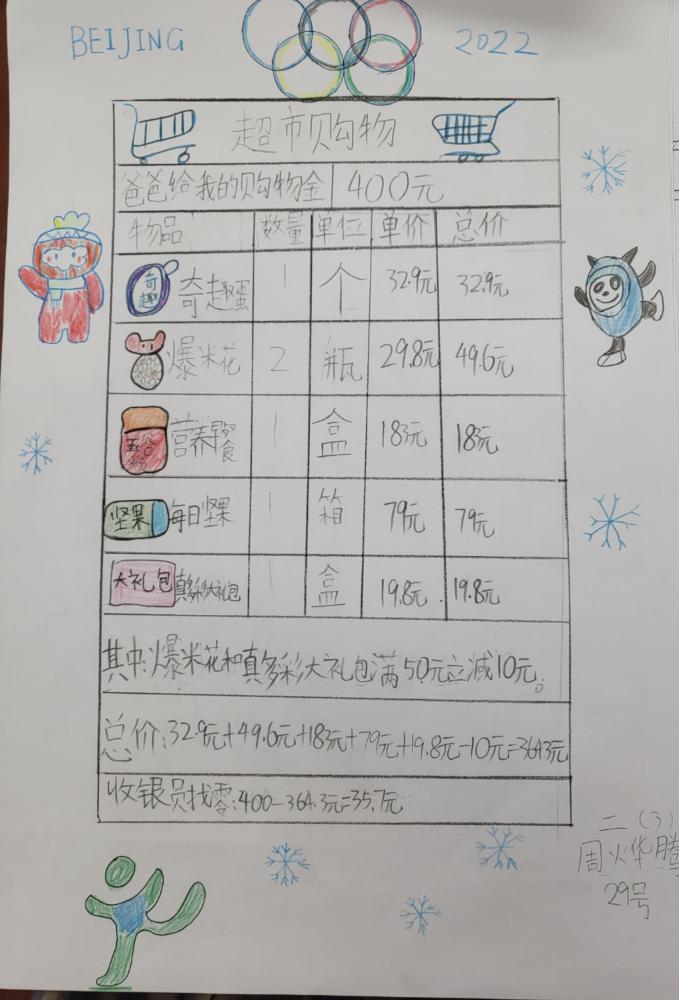 BEIJING 2022
超市购物
爸爸给我的购物金 400元
物品 数量 单位 单价 总价
奇趣 奇趣蛋 1 个 32.9元 32.9元
爆米花 2 瓶 29.8元 49.6元
营养早餐 1 盒 183元 183元
坚果 每日坚果 1 箱 79元 79元
大礼包 真多彩大礼包 1 盒 19.8元 19.8元
其中:爆米花和真多彩大礼包满50元立减10元。
总价:32.9元+49.6元+183元+79元+19.8元-10元=364.3元
收银员找零:400-364.3元=35.7元
二(3)
周火华腾
29号